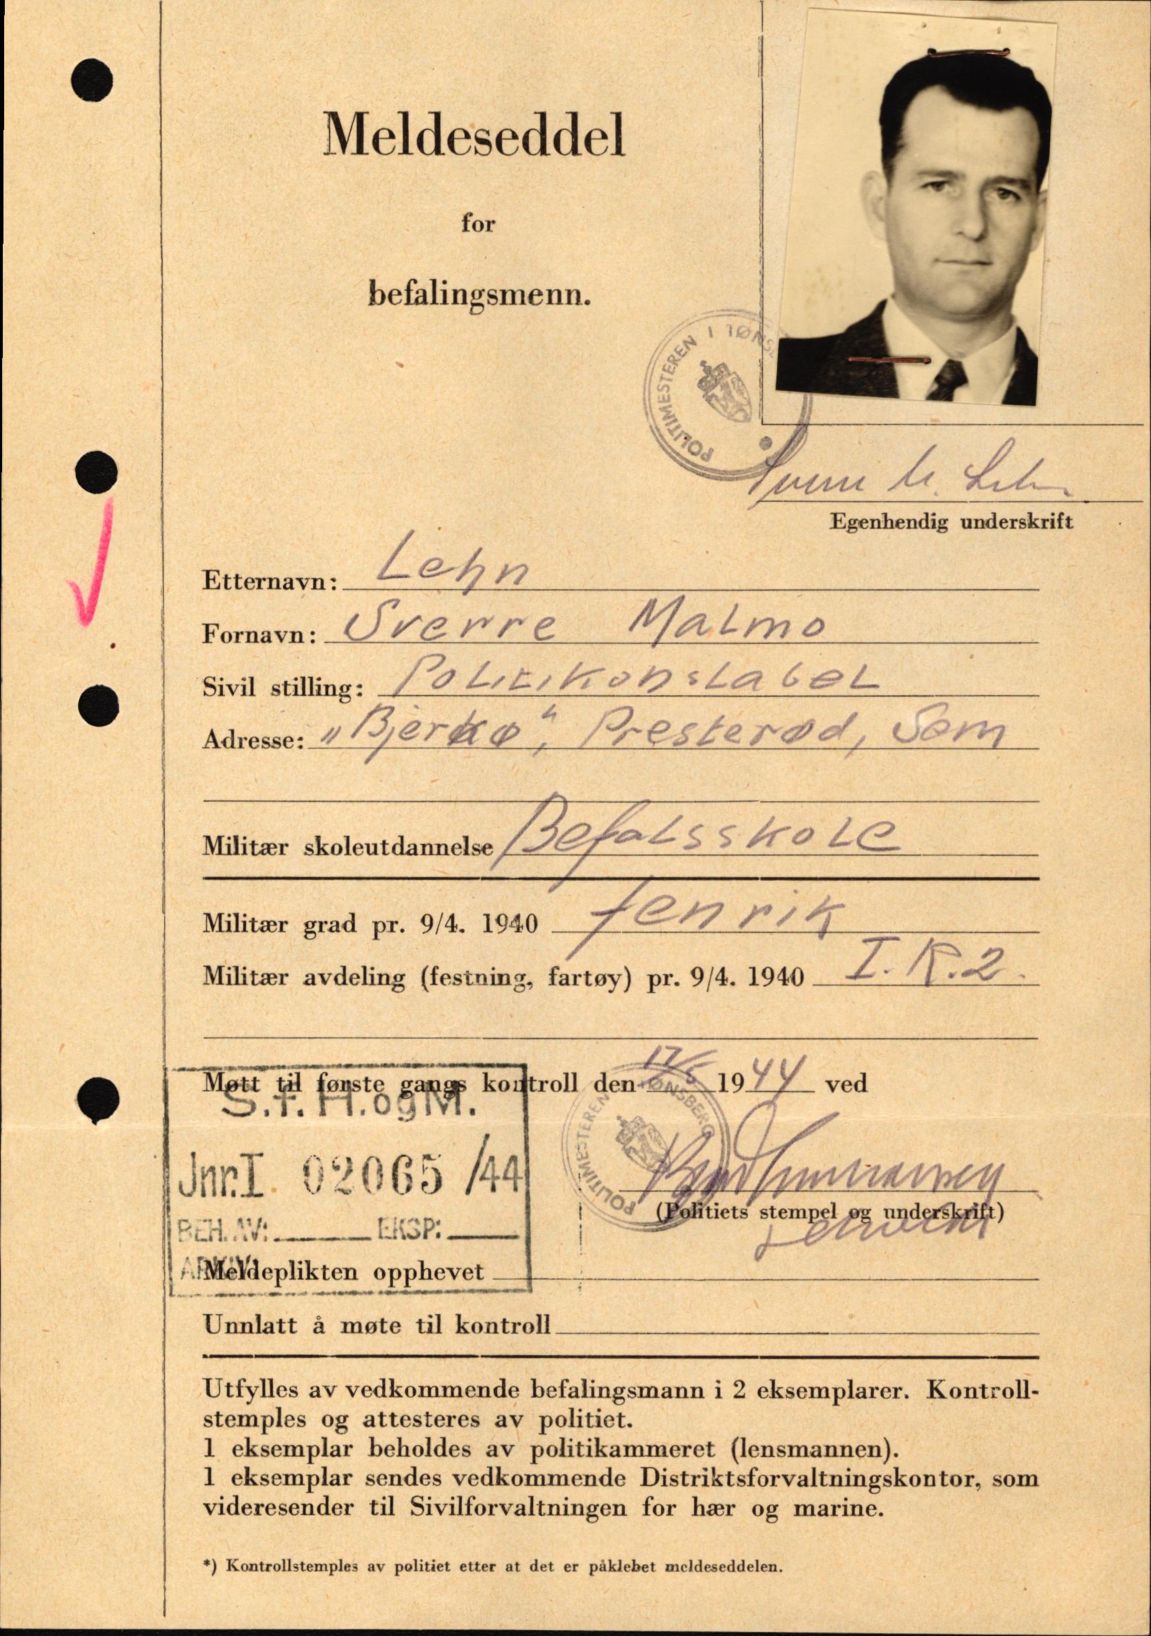 Meldeseddel
for
befalingsmenn.
POLITIMESTEREN I TØNS
Egenhendig underskrift
Etternavn: Lehn
Fornavn: Sverre Malmo
Sivil stilling: Politikonstabel
Adresse: „Bjerkø", Presterød, Sem
Militær skoleutdannelse Befalsskole
Militær grad pr. 9/4. 1940 fenrik
Militær avdeling (festning, fartøy) pr. 9/4. 1940 I.R.2.
Møtt til første gangs kontroll den 17/5 1944 ved
S.f.H.ogM.
Jnr.I 02065/44
BEH.AV: EKSP:
ARKIV:
POLITIMESTEREN I TØNSBERG
(Politiets stempel og underskrift)
Meldeplikten opphevet
Unnlatt å møte til kontroll
Utfylles av vedkommende befalingsmann i 2 eksemplarer. Kontroll-
stemples og attesteres av politiet.
1 eksemplar beholdes av politikammeret (lensmannen).
1 eksemplar sendes vedkommende Distriktsforvaltningskontor, som
videresender til Sivilforvaltningen for hær og marine.
*) Kontrollstemples av politiet etter at det er påklebet meldeseddelen.